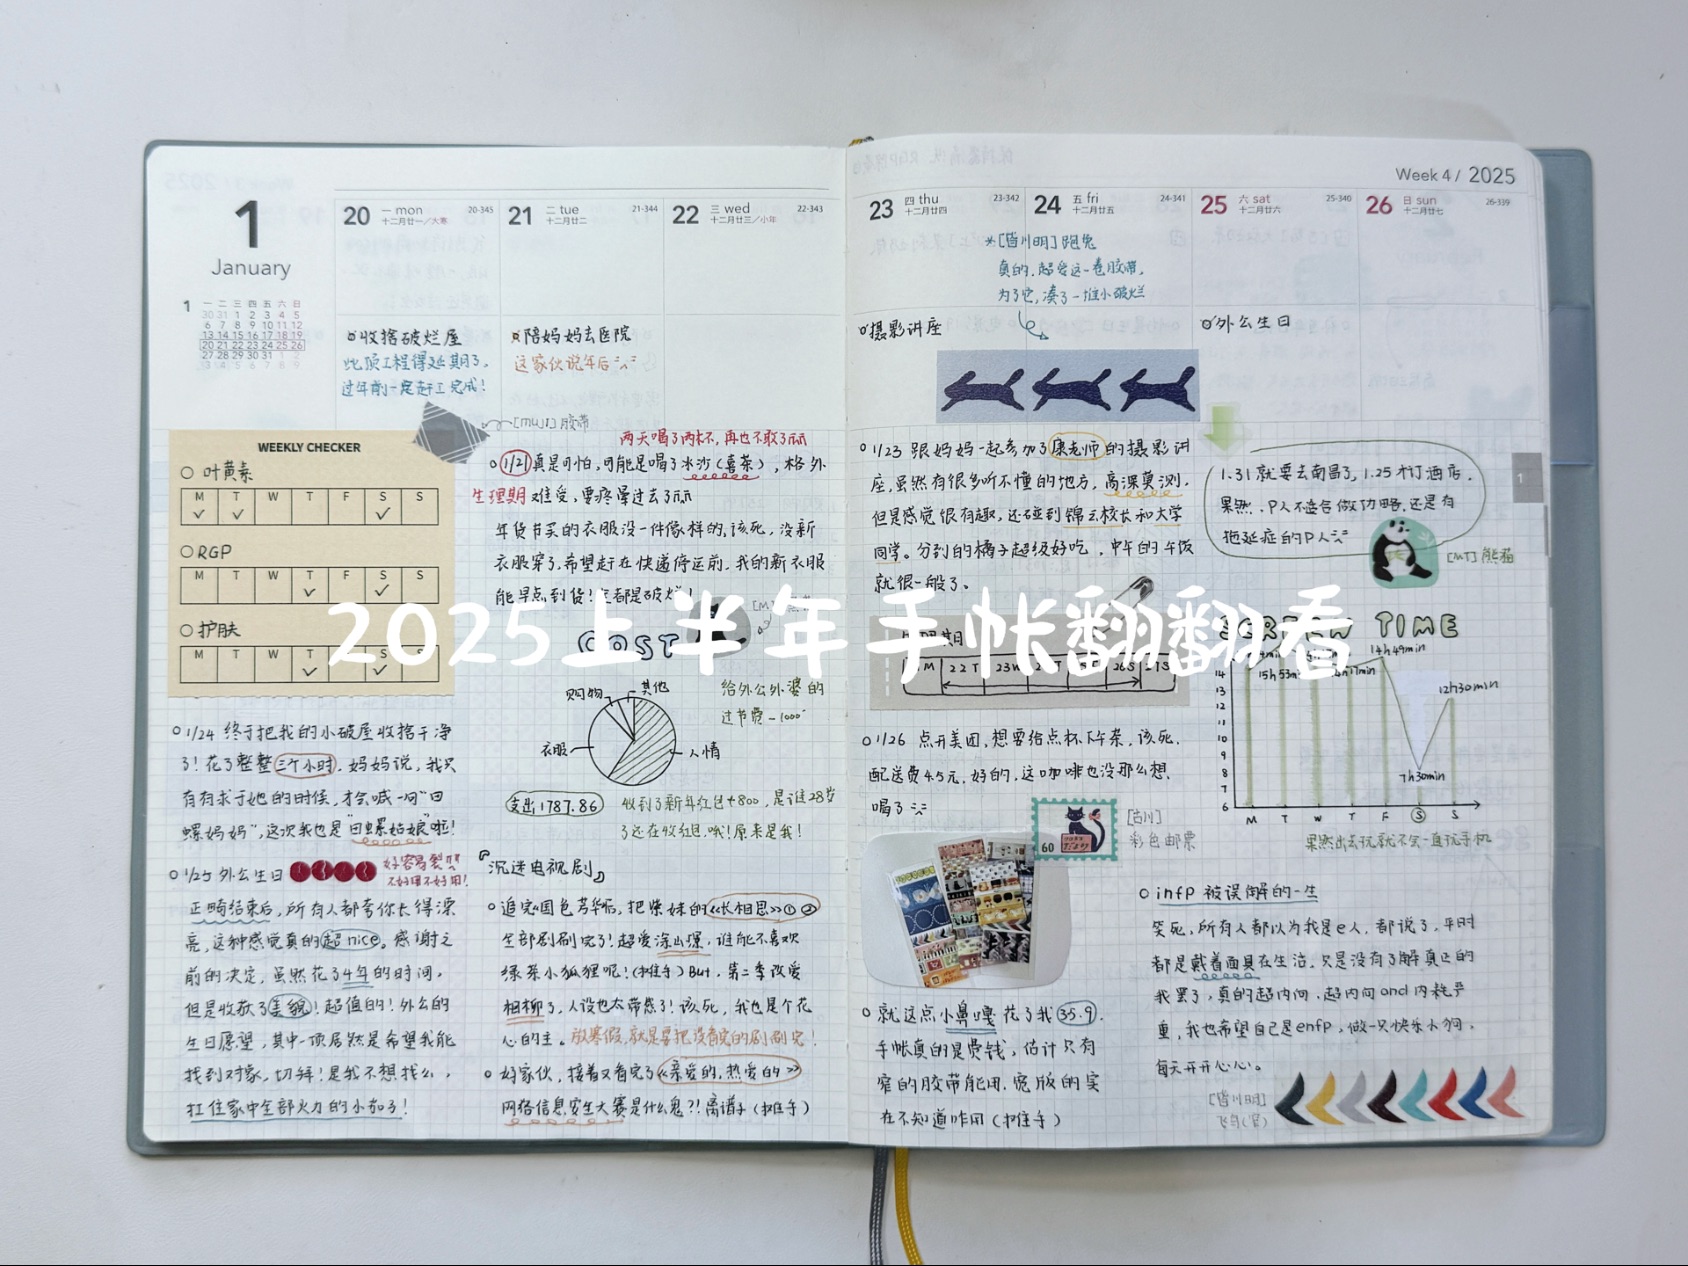 1
January
1 一 二 三 四 五 六 日
30 31 1 2 3 4 5
6 7 8 9 10 11 12
13 14 15 16 17 18 19
20 21 22 23 24 25 26
27 28 29 30 31 1 2
3 4 5 6 7 8 9
20 一 mon 20-345
十二月廿一/大寒
21 二 tue 21-344
十二月廿二
22 三 wed 22-343
十二月廿三/小年
收拾破烂屋
此项工程得延期了,
过年前一定赶工完成!
陪妈妈去医院
这家伙说年后
WEEKLY CHECKER
叶黄素
M T W T F S S
RGP
M T W T F S S
护肤
M T W T F S S
[MUJI] 胶带
两天喝了两杯,再也不敢了
1/21 真是可怕,可能是喝了冰沙(喜茶),格外
生理期难受,要疼晕过去了
年货节买的衣服没一件像样的,该死,没新
衣服穿了,希望赶在快递停运前,我的新衣服
能早点到货!全都是破烂!
COST
购物
其他
衣服
人情
给外公外婆的
过节费-1000
支出1787.86
收到了新年红包+800,是谁28岁
了还在收红包,哦!原来是我!
1/24 终于把我的小破屋收拾干净
了!花了整整三个小时,妈妈说,我只
有有求于她的时候,才会喊一句"田
螺妈妈",这次我也是"田螺姑娘"啦!
1/25 外公生日
好容易裂
不好用不好用!
正畸结束后,所有人都夸你长得漂
亮,这种感觉真的超nice。感谢之
前的决定,虽然花了4年的时间,
但是收获了美貌!超值的!外公的
生日愿望,其中一项居然是希望我能
找到对象,切拜!是我不想找么,
扛住家中全部火力的小茄子!
『沉迷电视剧』
追完《国色芳华》后,把燎妹的《长相思》①②
全部刷刷完了!超爱涂山璟,谁能不喜欢
绿茶小狐狸呢!(扶住手)But,第二季改爱
相柳了,人设也太带感了!该死,我也是个花
心的主。放寒假,就是要把没看完的剧刷完!
好家伙,接着又看完了《亲爱的,热爱的》
网络信息安全大赛是什么鬼?!离谱子(扶住手)
2025上半年手帐翻翻看
Week 4 / 2025
23 四 thu 23-342
十二月廿四
24 五 fri 24-341
十二月廿五
25 六 sat 25-340
十二月廿六
26 日 sun 26-339
十二月廿七
*[皆川明]跑兔
真的,超爱这一卷胶带,
为了它,凑了一堆小破烂
摄影讲座
外公生日
1/23 跟妈妈一起参加了康老师的摄影讲
座,虽然有很多听不懂的地方,高深莫测,
但是感觉很有趣,还碰到锦云校长和大学
同学。分到的橘子超级好吃,中午的午饭
就很一般了。
22 T
1/26 点开美团,想要给点杯下午茶,该死,
配送费4.5元,好的,这咖啡也没那么想
喝了
60
[古川]
彩色邮票
就这点小鼻嘎花了我35.9,
手帐真的是费钱,估计只有
窄的胶带能用,宽版的实
在不知道咋用(扶住手)
1.31就要去南昌了,1.25才订酒店,
果然,P人不适合做功略,还是有
拖延症的P人
[MT]熊猫
1
SCREEN TIME
14h49min
12h30min
7h30min
14
13
12
11
10
9
8
7
6
M T W T F S S
果然出去玩就不会一直玩手机
infp 被误解的一生
笑死,所有人都以为我是e人,都说了,平时
都是戴着面具在生活,只是没有了解真正的
我罢了,真的超内向,超内向and内耗严
重,我也希望自己是enfp,做一只快乐小狗,
每天开开心心。
[皆川明]
飞鸟(宽)